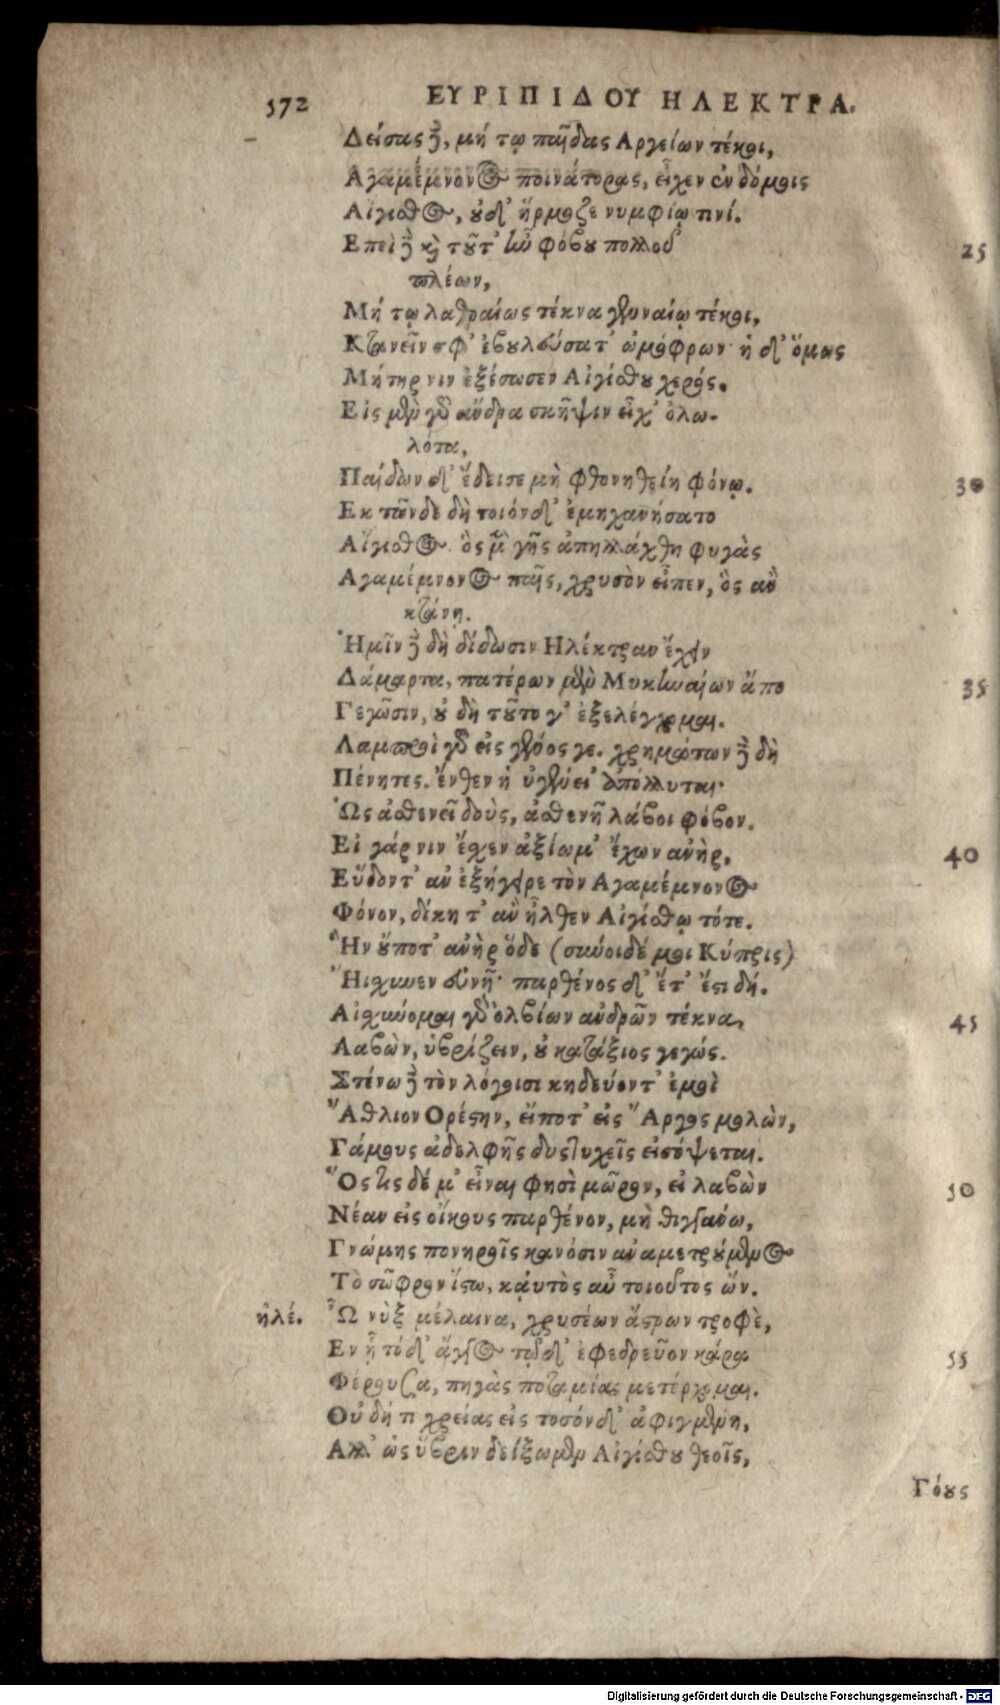 572 ΕΥΡΙΠΙΔΟΥ ΗΛΕΚΤΡΑ.
Δείσας δὲ, μή τῳ παῖδας Αργείων τέκοι,
Αγαμέμνονος ποινάτορας, εἶχεν ἐν δόμοις
Αἴγισθος, οὐδ' ἥρμοζε νυμφίῳ τινί.
Επεὶ δὲ καὶ τοῦτ' ἦν φόβου πολλοῦ 25
πλέων,
Μή τῳ λαθραίως τέκνα γενναίῳ τέκοι,
Κτανεῖν σφ' ἐβουλεύσατ' ὠμόφρων· ἡ δ' ὅμως
Μήτηρ νιν ἐξέσωσεν Αἰγίσθου χερός.
Εἰς μὲν γὸ ἄνδρα σκῆψιν εἶχ' ὀλω-
λότα,
Παίδων δ' ἔδεισε μὴ φθονηθείη φόνῳ. 30
Εκ τῶνδε δὴ τοιόνδ' ἐμηχανήσατο
Αἴγισθος· ὃς μὲν γῆς ἀπηλλάχθη φυγὰς
Αγαμέμνονος παῖς, χρυσὸν εἶπεν, ὃς ἂν
κτάνῃ.
Ἡμῖν δὲ δὴ δίδωσιν Ηλέκτραν ἔχειν
Δάμαρτα, πατέρων μὲν Μυκηναίων ἄπο 35
Γεγῶσιν, οὐ δὴ τοῦτο γ' ἐξελέγχομαι.
Λαμπροὶ γὸ εἰς γένος γε. χρημάτων δὲ δὴ
Πένητες. ἔνθεν ἡ ὑγένει' ἀπόλλυται·
Ὡς ἀσθενεῖ δοὺς, ἀσθενῆ λάβοι φόβον.
Εἰ γάρ νιν ἔσχεν ἀξίωμ' ἔχων ἀνὴρ, 40
Εὕδοντ' ἂν ἐξήγειρε τὸν Αγαμέμνονος
Φόνον, δίκη τ' ἂν ἦλθεν Αἰγίσθῳ τότε.
Ἣν οὔποτ' ἀνὴρ ὅδε (σύνοιδέ μοι Κύπρις)
Ἤισχυνεν εὐνῇ· παρθένος δ' ἔτ' ἔστι δή.
Αἰσχύνομαι γὸ ὀλβίων ἀνδρῶν τέκνα, 45
Λαβὼν, ὑβρίζειν, οὐ κατάξιος γεγώς.
Στένω δὲ τὸν λόγοισι κηδεύοντ' ἐμοὶ
Ἄθλιον Ορέστην, εἴποτ' εἰς Ἄργος μολὼν,
Γάμους ἀδελφῆς δυστυχεῖς εἰσόψεται.
Ὅς τις δέ μ' εἶναι φησὶ μῶρον, εἰ λαβὼν 50
Νέαν εἰς οἴκους παρθένον, μὴ θιγγάνω,
Γνώμης πονηροῖς κανόσιν ἀναμετρούμενος
Τὸ σῶφρον ἴστω, καὐτὸς αὖ τοιοῦτος ὤν.
ἠλέ. Ὦ νὺξ μέλαινα, χρυσέων ἄστρων τροφὲ,
Εν ᾗ τόδ' ἄγγος τῷδ' ἐφεδρεῦον κάρᾳ 55
Φέρουσα, πηγὰς ποταμίας μετέρχομαι.
Οὐ δή τι χρείας εἰς τοσόνδ' ἀφιγμένη,
Αλλ' ὡς ὕβριν δείξωμεν Αἰγίσθου θεοῖς,
Γόους
Digitalisierung gefördert durch die Deutsche Forschungsgemeinschaft - DFG